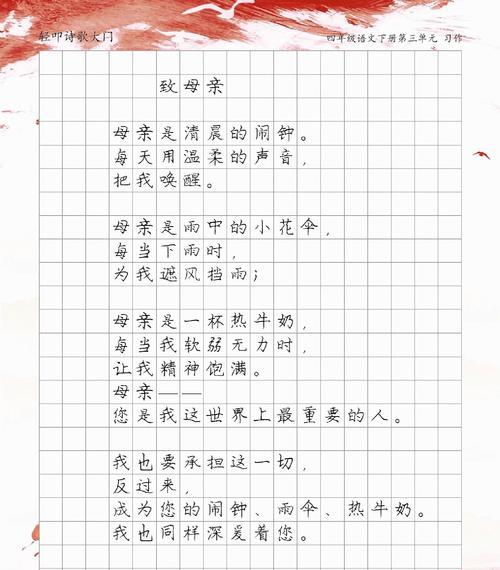 轻叩诗歌大门
四年级语文下册第三单元 习作
致母亲
母亲是清晨的闹钟。
每天用温柔的声音，
把我唤醒。
母亲是雨中的小花伞，
每当下雨时，
为我遮风挡雨；
母亲是一杯热牛奶，
每当我软弱无力时，
让我精神饱满。
母亲——
您是我这世界上最重要的人。
我也要承担这一切，
反过来，
成为您的闹钟、雨伞、热牛奶。
我也同样深爱着您。